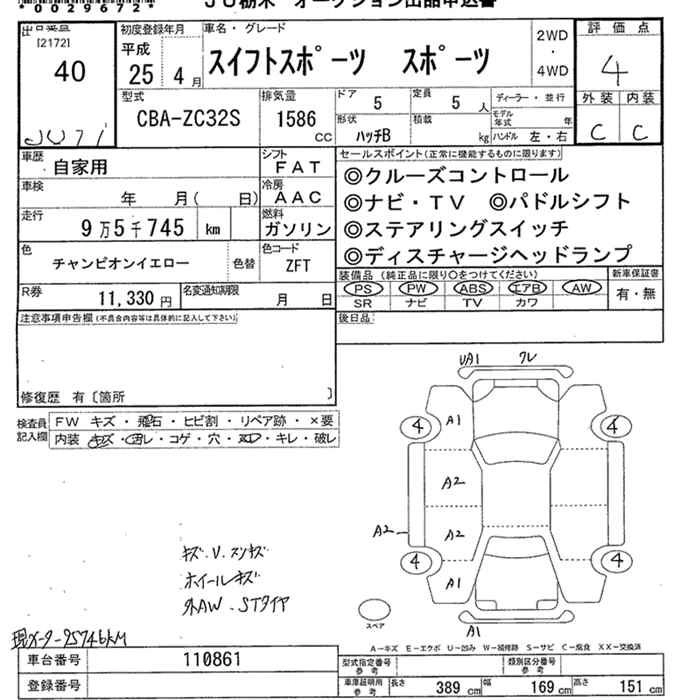 *0029672*
JU栃木 オークション出品申込書
[2172]
40
初度登録年月
平成
25年 4月
車名・グレード
スイフトスポーツ スポーツ
2WD
・
4WD
評価点
4
外装 内装
C C
型式
CBA-ZC32S
排気量
1586 cc
ドア
5
定員
5 人
ディーラー・並行
モデル年式 年
形状
ハッチB
積載 kg
ハンドル 左・右
車歴
自家用
シフト
FAT
セールスポイント(正常に機能するものに限ります)
車検
年 月( 日)
冷房
AAC
◎クルーズコントロール
◎ナビ・TV ◎パドルシフト
◎ステアリングスイッチ
◎ディスチャージヘッドランプ
走行
9万5千745 km
燃料
ガソリン
色
チャンピオンイエロー
色替
色コード
ZFT
装備品 (純正品に限り○をつけてください)
新車保証書
PS PW ABS エアB AW
SR ナビ TV カワ
有・無
R券
11,330 円
名変通知期限
月 日
注意事項申告欄(不具合内容等は具体的に記入して下さい)
後日品
修復歴 有〔箇所 〕
検査員記入欄
FW キズ・飛石・ヒビ割・リペア跡・×要
内装 キズ・汚レ・コゲ・穴・ヌレ・キレ・破レ
UA1 クレ
A1
4 4
A2
A2
A2
4 4
A1
A1
スペア
キズ.U.スリキズ
ホイールキズ
外AW.STタイヤ
現メーター95746KM
A-キズ E-エクボ U-凹み W-補修跡 S-サビ C-腐食 XX-交換済
車台番号
110861
登録番号
型式指定番号参考
類別区分番号参考
車庫証明用参考
長さ 389 cm 幅 169 cm 高さ 151 cm